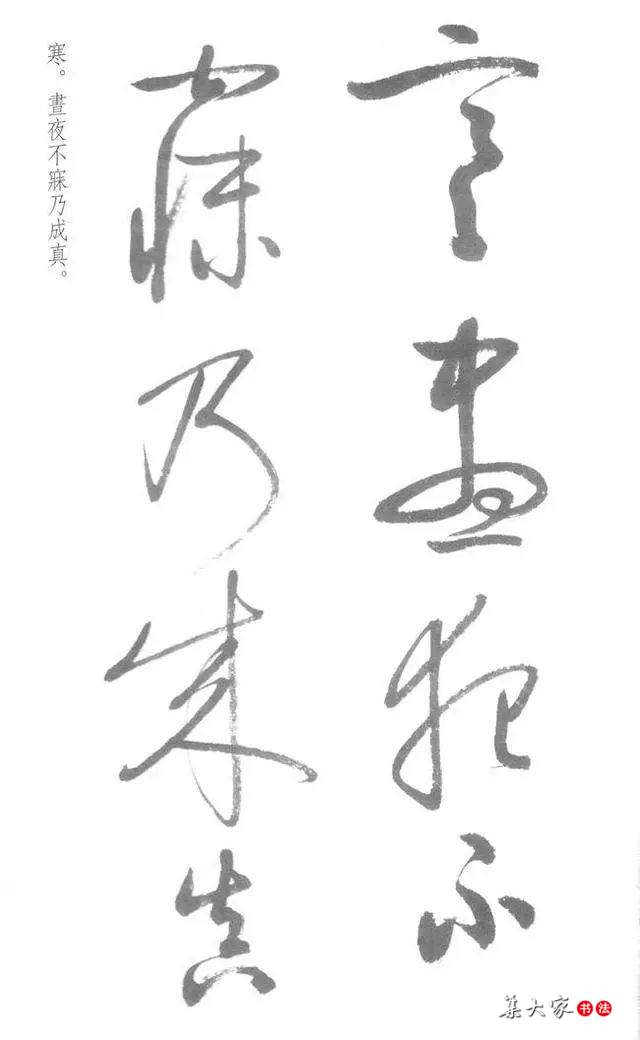 寒晝夜不
寐乃成真
寒。晝夜不寐乃成真。
集大家书法